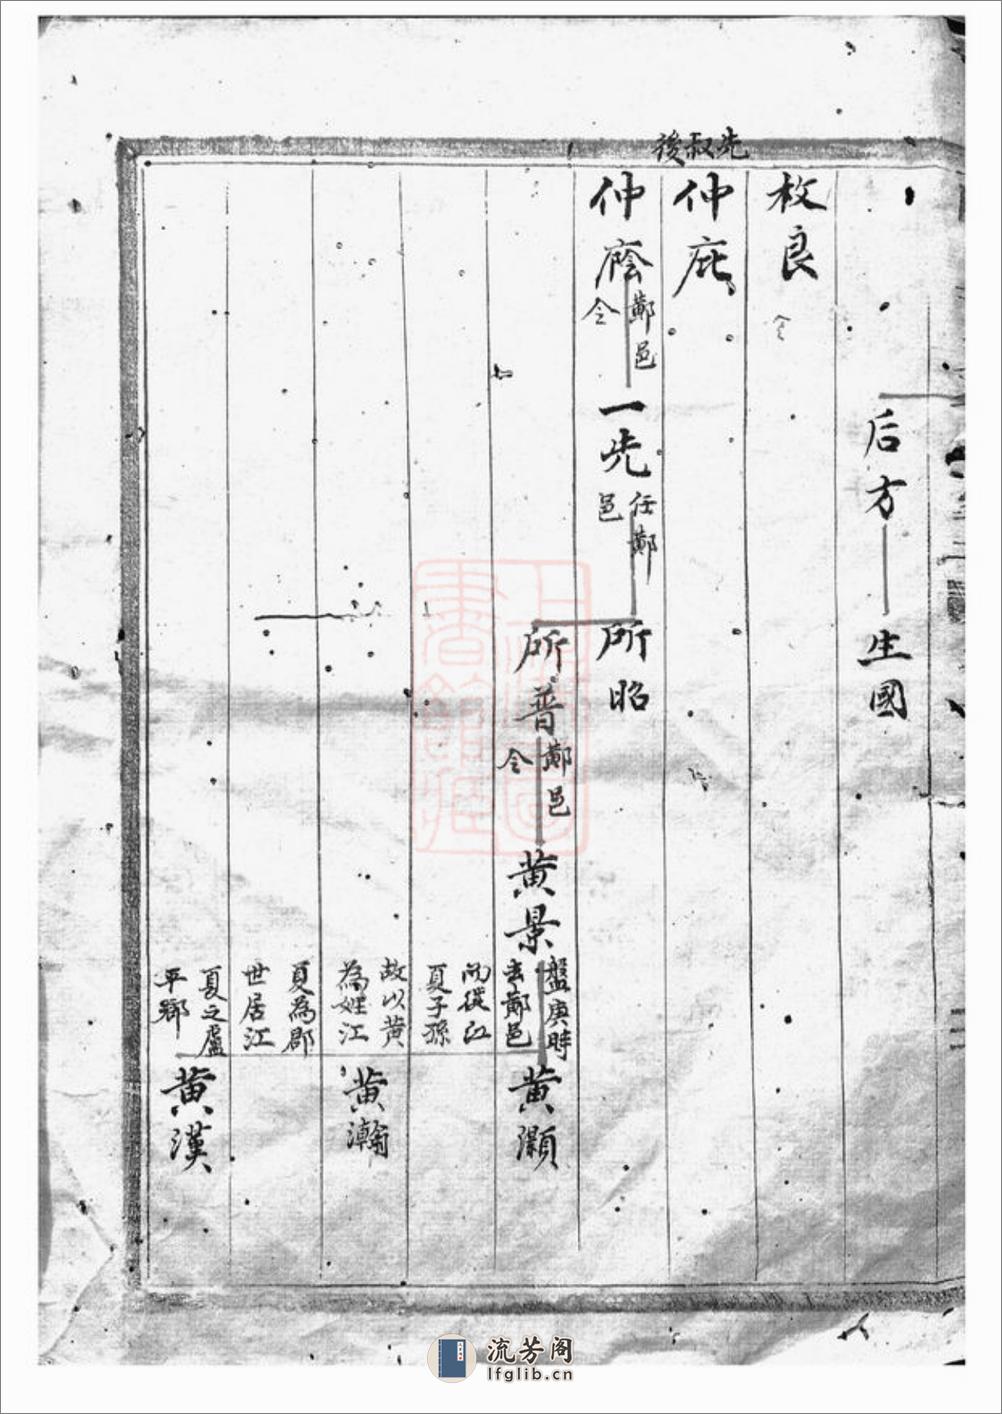 后方
生國
枚良
仝
先叔後
仲庇
仲廕
鄭邑
仝
一先
任鄭
邑
所昭
所普
鄭邑
仝
黄景
盤庚時
去鄭邑
而從江
夏子孫
故以黄
為姓江
夏為郡
世居江
夏之廬
平鄉
黄灝
黄瀚
黄漢
流芳阁
lfglib.cn